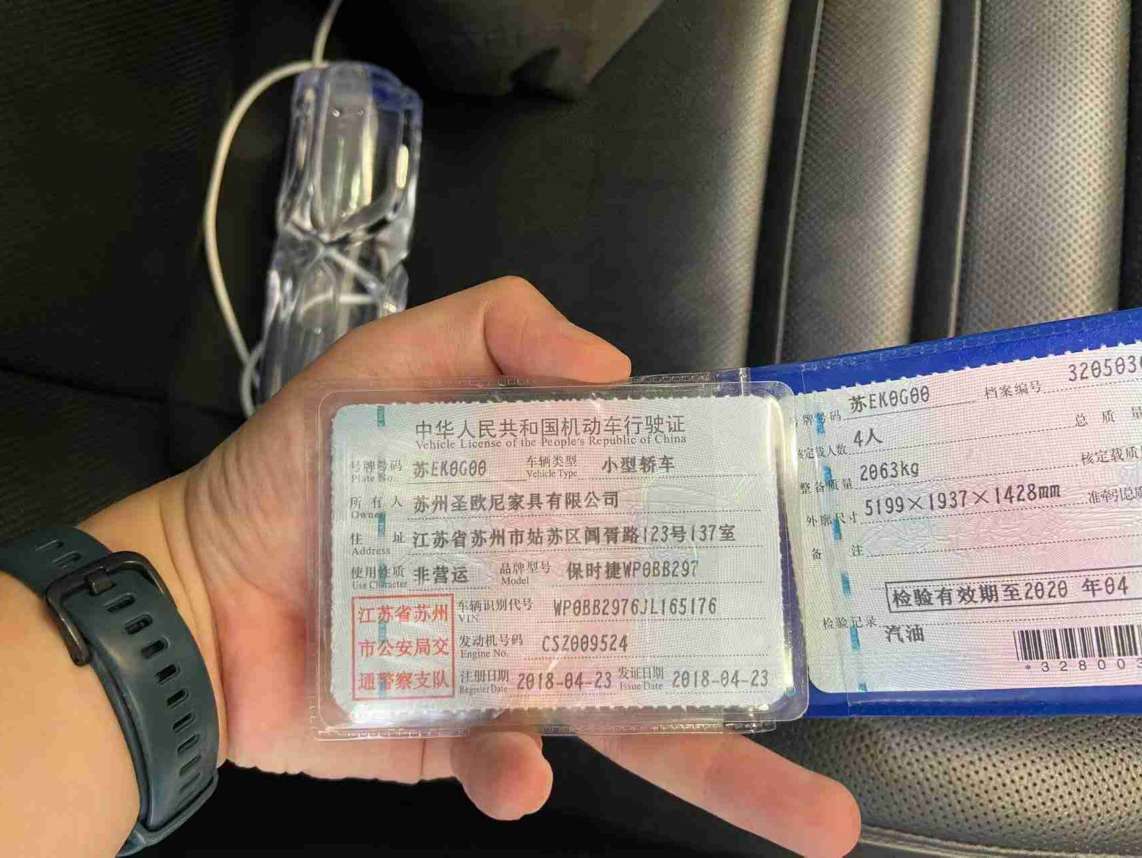 中华人民共和国机动车行驶证
Vehicle License of the People's Republic of China
号牌号码 苏EK0G00 车辆类型 小型轿车
Plate No. Vehicle Type
所有人 苏州圣欧尼家具有限公司
Owner
住址 江苏省苏州市姑苏区阊胥路123号137室
Address
使用性质 非营运 品牌型号 保时捷WP0BB297
Use Character Model
江苏省苏州
市公安局交
通警察支队
车辆识别代号 WP0BB2976JL165176
VIN
发动机号码 CSZ009524
Engine No.
注册日期 2018-04-23 发证日期 2018-04-23
Register Date Issue Date
号牌号码 苏EK0G00 档案编号 320503
核定载人数 4人 总质量
整备质量 2063kg 核定载质
外廓尺寸 5199×1937×1428mm 准牵引总质
备注
检验有效期至2020 年04
检验记录
汽油
*32800